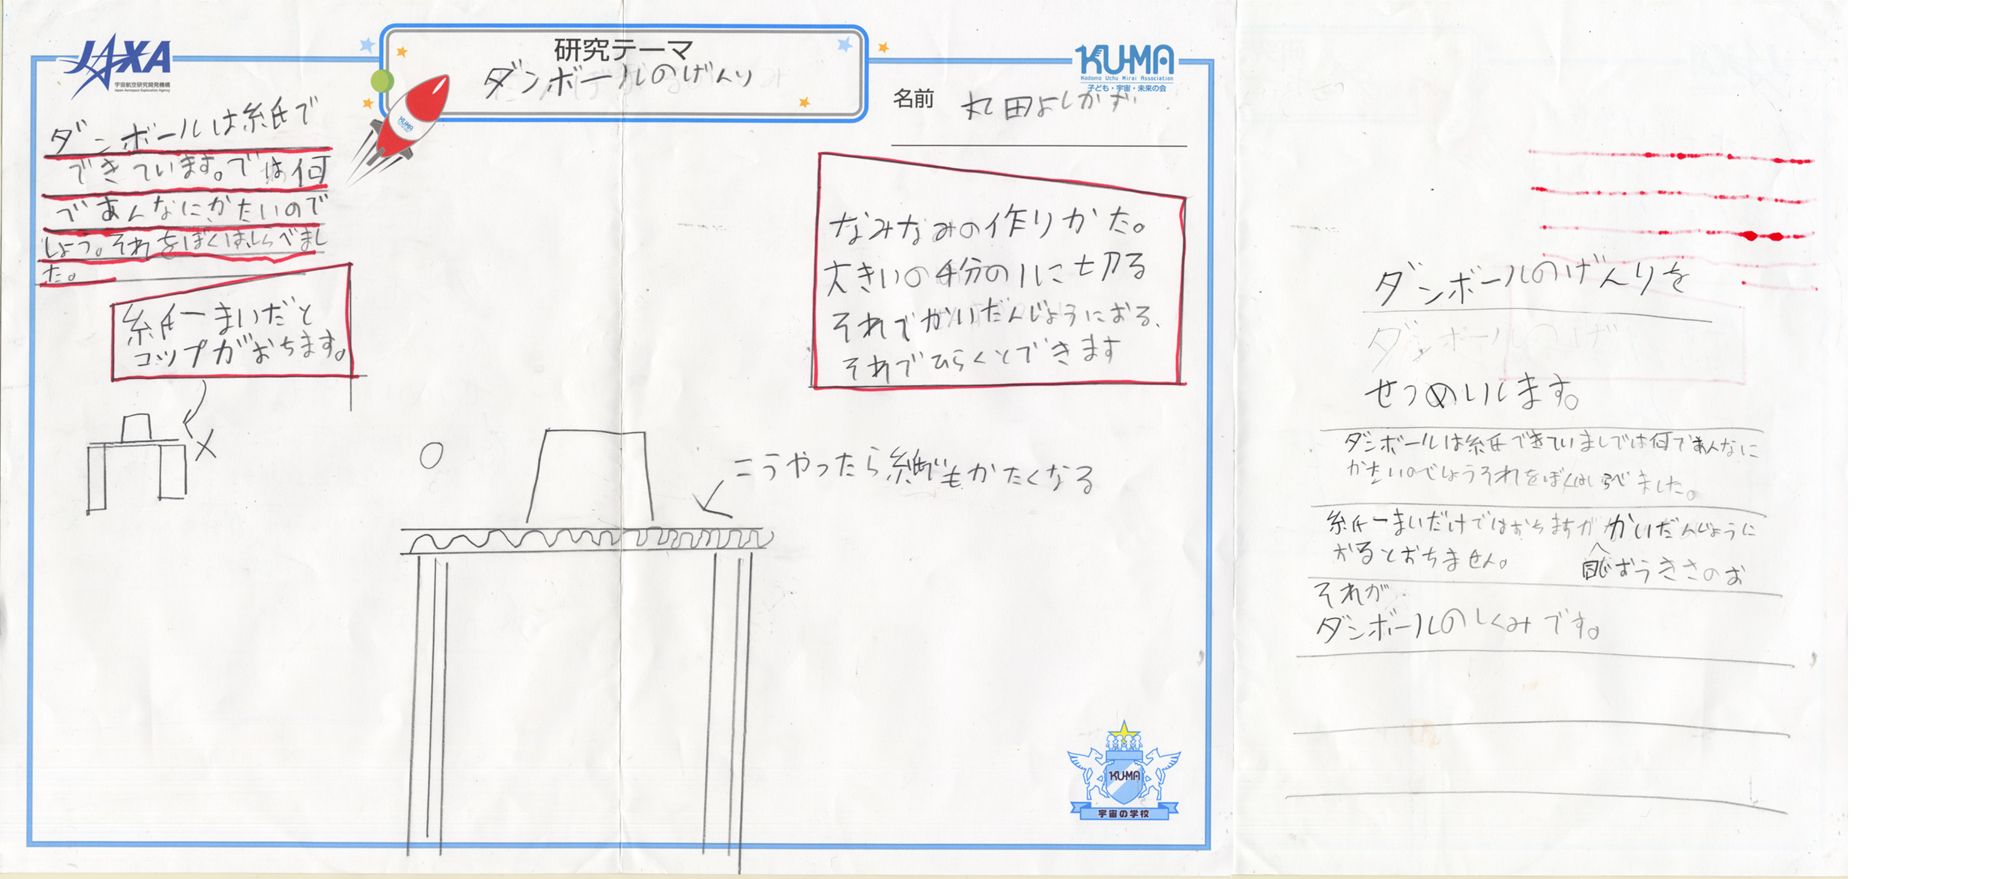 JAXA
宇宙航空研究開発機構
Japan Aerospace Exploration Agency
研究テーマ
ダンボールのげんり
KUMA
KU-MA
Kodomo Uchu Mirai Association
子ども・宇宙・未来の会
名前 丸田よしかず
ダンボールは紙で
できています。では何
であんなにかたいので
しょう。それをぼくはしらべまし
た。
紙一まいだと
コップがおちます。
なみなみの作りかた。
大きいの4分の1に切る
それでかいだんじょうにおる、
それでひらくとできます
こうやったら紙でもかたくなる
KU-MA
宇宙の学校
ダンボールのげんりを
ダンボールのげ
せつめいします。
ダンボールは紙でできていましでは何であんなに
かたいのでしょうそれをぼくはしらべました。
紙一まいだけではおちますがかいだんじょうに
おるとおちません。
それが
ダンボールのしくみです。